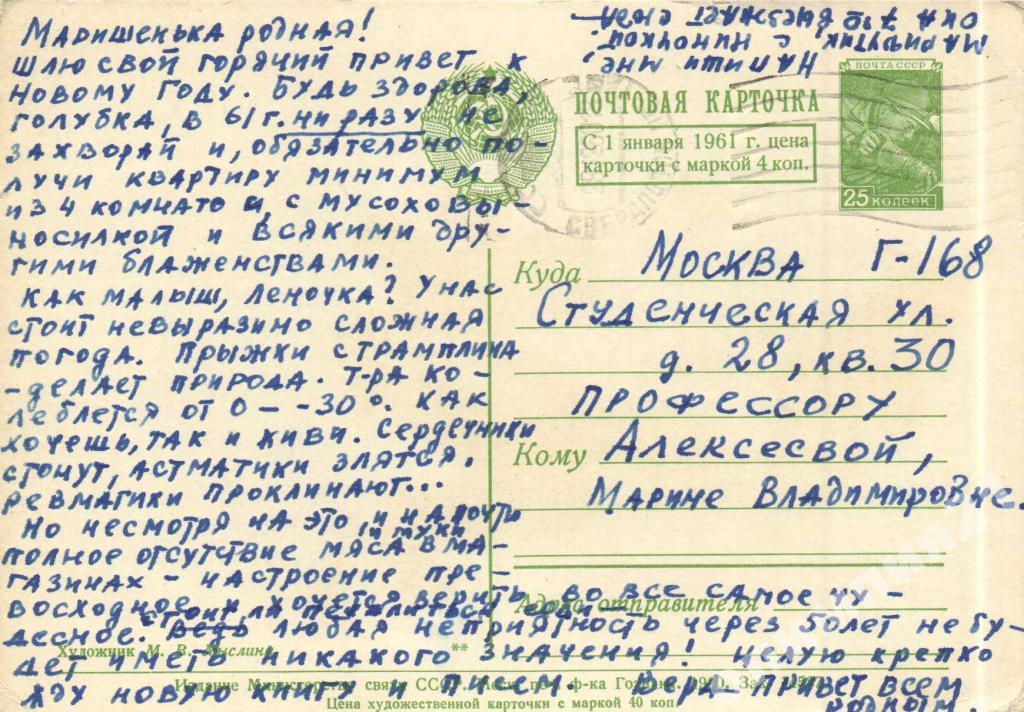 Маришенька родная!
шлю свой горячий привет к
Новому Году. Будь здорова,
голубка, в 61 г. ни разу не
захворай и, обязательно по-
лучи квартиру минимум
из 4 комнат и, с мусоховы-
носилкой и всякими дру-
гими блаженствами.
Как малыш, Леночка? У нас
стоит невыразимо сложная
погода. Прыжки с трамплина
-делает природа. Т-ра ко-
леблется от 0 - -30°. Как
хочешь, так и живи. Сердечники
стонут, астматики злятся,
ревматики проклинают...
Но несмотря на это и на почти
полное отсутствие мяса в ма-
и муки
газинах - настроение пре-
восходное и хочется верить во все самое чу-
десное. Ведь любая неприятность через 50 лет не бу-
дет иметь никакого значения! Целую крепко
Жду новую книгу и писем. Вера. Привет всем
родным.
Напиши мне,
Марпутик, с Нинохкой
она 7го выезжает сюда.
ПОЧТА СССР
25 копеек
ПОЧТОВАЯ КАРТОЧКА
С 1 января 1961 г. цена
карточки с маркой 4 коп.
Куда Москва Г-168
Студенческая ул.
д. 28, кв. 30
профессору
Кому Алексеевой,
Марине Владимировне.
Адрес отправителя
Художник М. В. Мыслина
**
Издание Министерства связи СССР
ф-ка Гознака. 1960. Зак.
Цена художественной карточки с маркой 40 коп